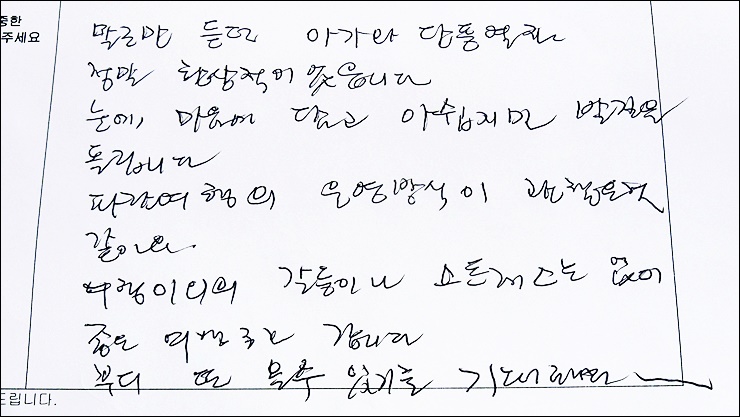 중한
주세요
말로만 듣던 아가와 단풍열차
정말 환상적이었습니다
눈에, 마음에 담고 아쉽지만 발길을
돌립니다
파란여행의 운영방식이 괜찮은것
같아요.
여행이외의 갈등이나 스트레스는 없이
좋은 여행하고 갑니다
부디 또 올수 있기를 기대하며
드립니다.